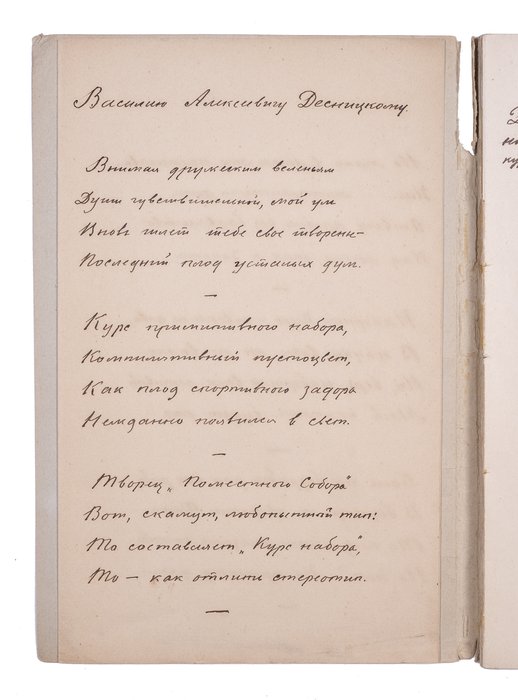 Василию Алексеевичу Десницкому.
Внимая дружеским веленьям
Души чувствительной, мой ум
Вновь шлет тебе свое творенье
Последний плод усталых дум.
—
Курс примитивного набора,
Компилятивный пустоцвет,
Как плод спортивного задора
Нежданно появился в свет.
—
Творец „Поместного Собора"
Вот, скажут, любопытный тип:
То составляет „Курс набора",
То — как отлить стереотип.
—